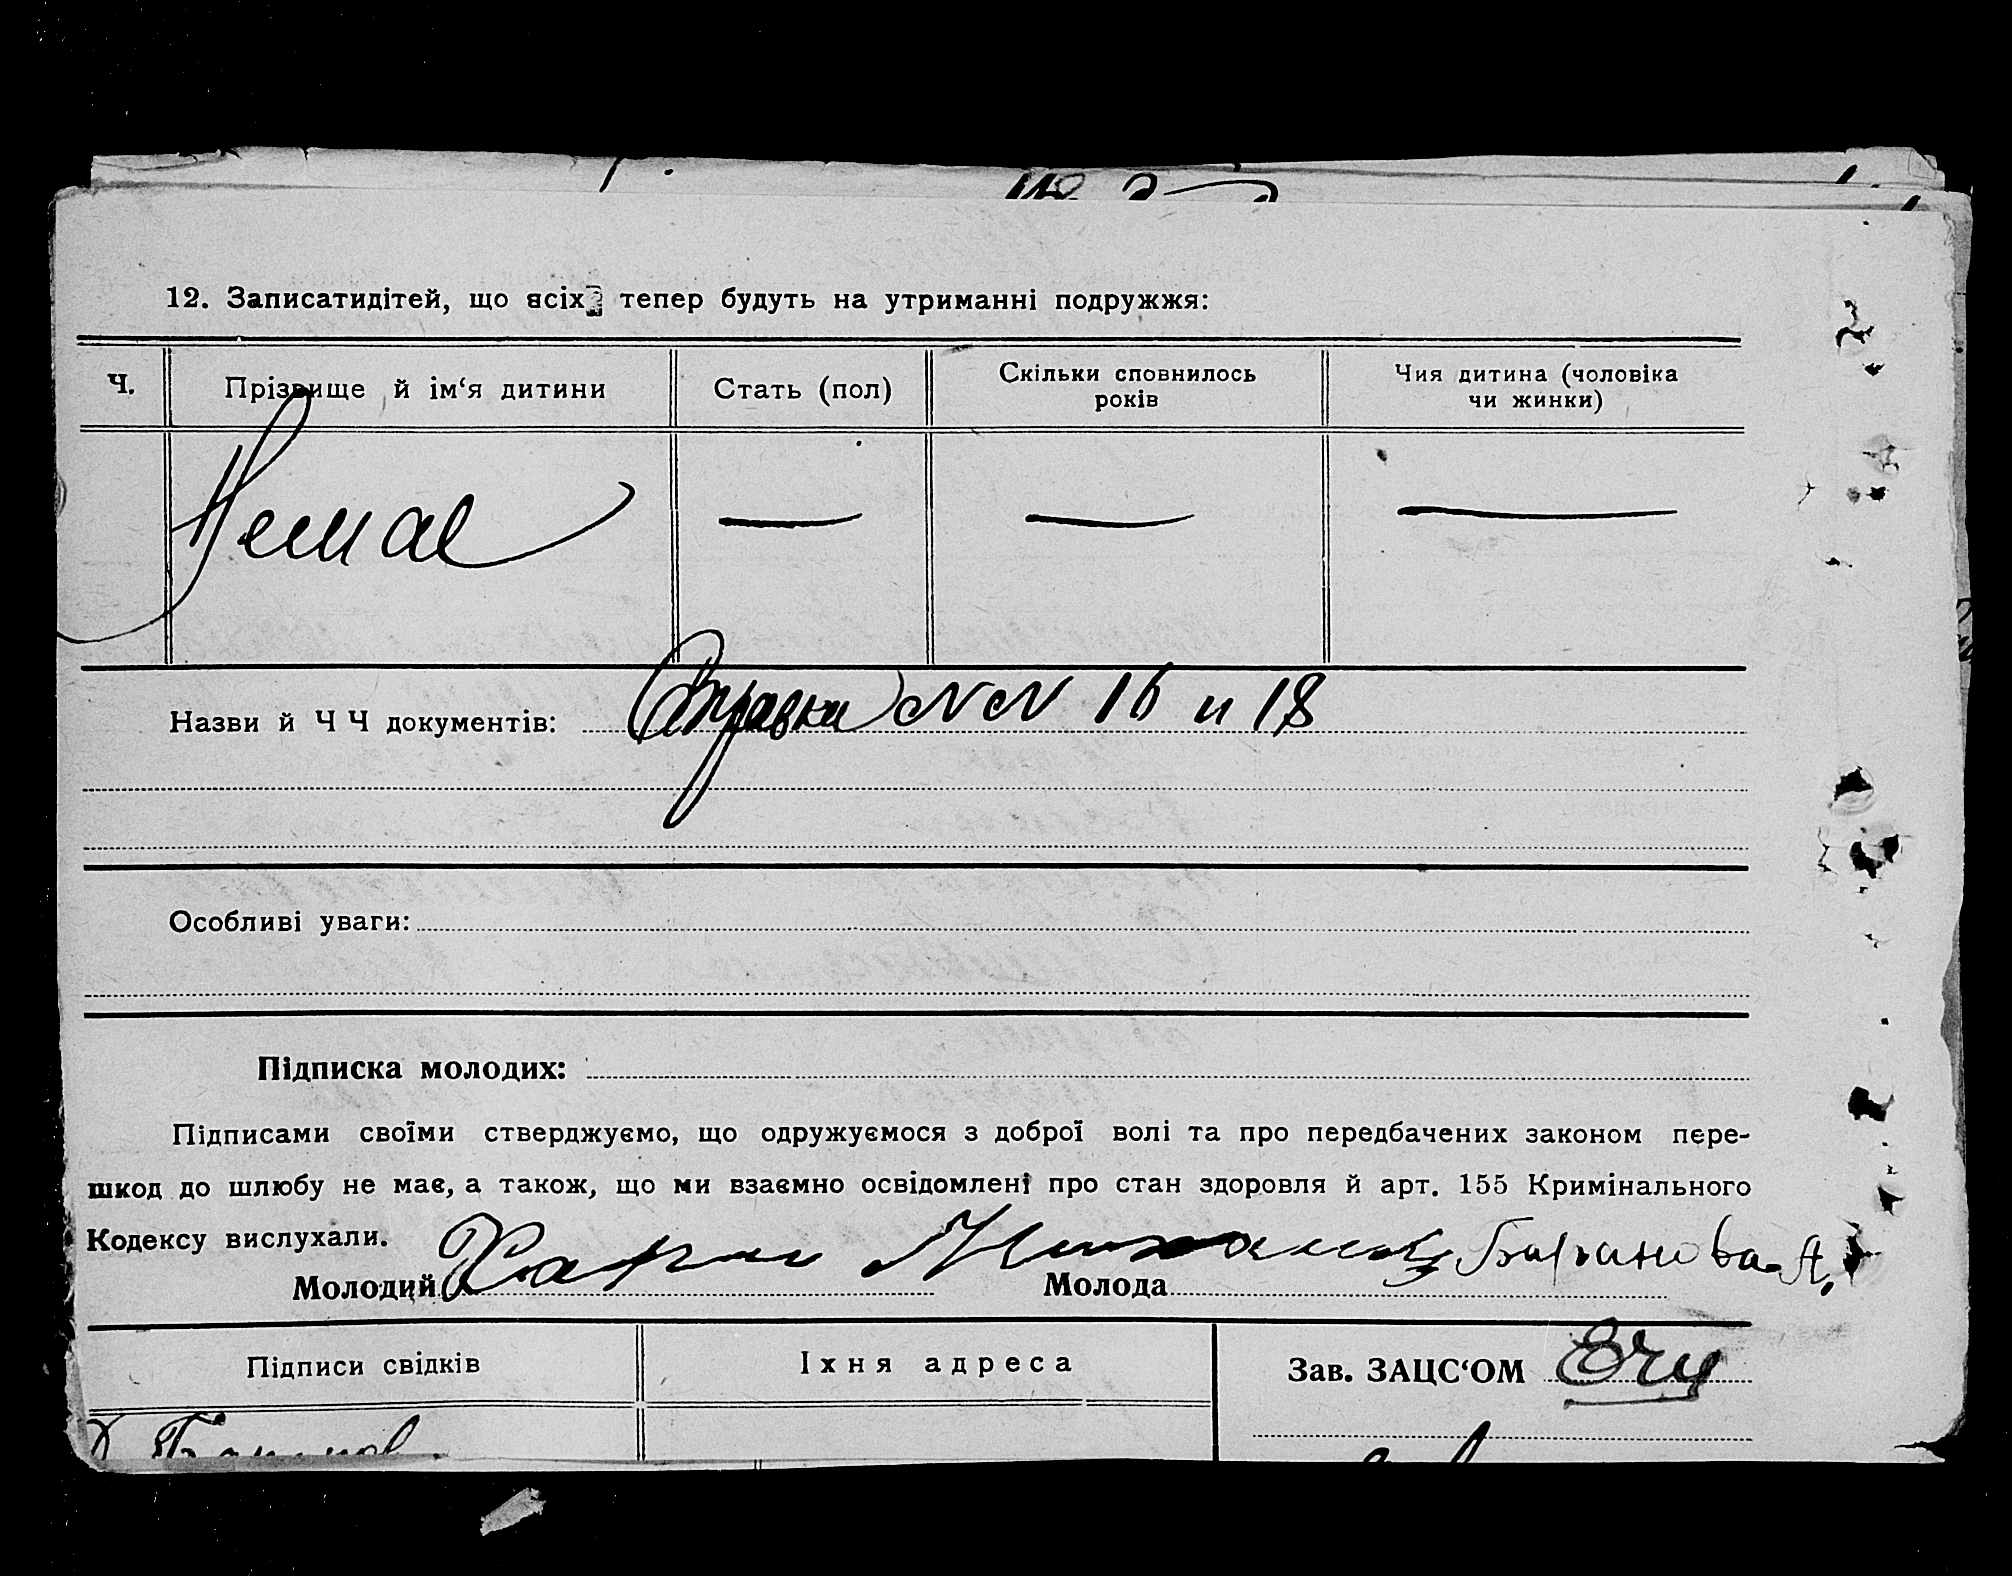 12. Записатидітей, що всіх тепер будуть на утриманні подружжя:
Ч. Прізвище й ім‘я дитини Стать (пол) Скільки сповнилось років Чия дитина (чоловіка чи жинки)
Немає — — —
Назви й Ч Ч документів: Справки NN 16 и 18
Особливі уваги:
Підписка молодих:
Підписами своїми стверджуємо, що одружуємося з доброї волі та про передбачених законом пере-
шкод до шлюбу не має, а також, що ми взаємно освідомлені про стан здоровля й арт. 155 Кримінального
Кодексу вислухали.
Молодий Молода Баранова А.
Підписи свідків Їхня адреса Зав. ЗАЦС‘ОМ